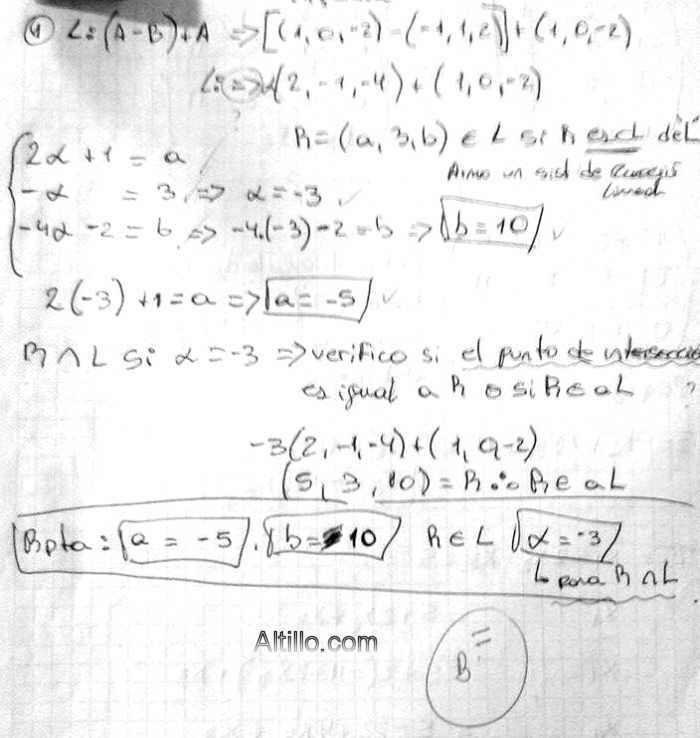 ④ L: (A-B)+A => [(1,0,-2)-(-1,1,2)]+(1,0,-2)
L: => α(2,-1,-4)+(1,0,-2)
?
R=(a,3,b) ∈ L si R es cl del L
Armo un sist de
lineal
2α+1 = a
-α = 3 => α=-3 ✓
-4α-2=b => -4.(-3)-2=b => b=10 ✓
2(-3)+1=a => a=-5 ✓
R∩L si α=-3 => verifico si el punto de intersección
es igual a R o si R∈aL ?
-3(2,-1,-4)+(1,0,-2)
(5,3,10)=R ∴ R∈aL
Rpta: a = -5 . b = 10 R∈L α=-3
↳ para R∩L.
B=
Altillo.com